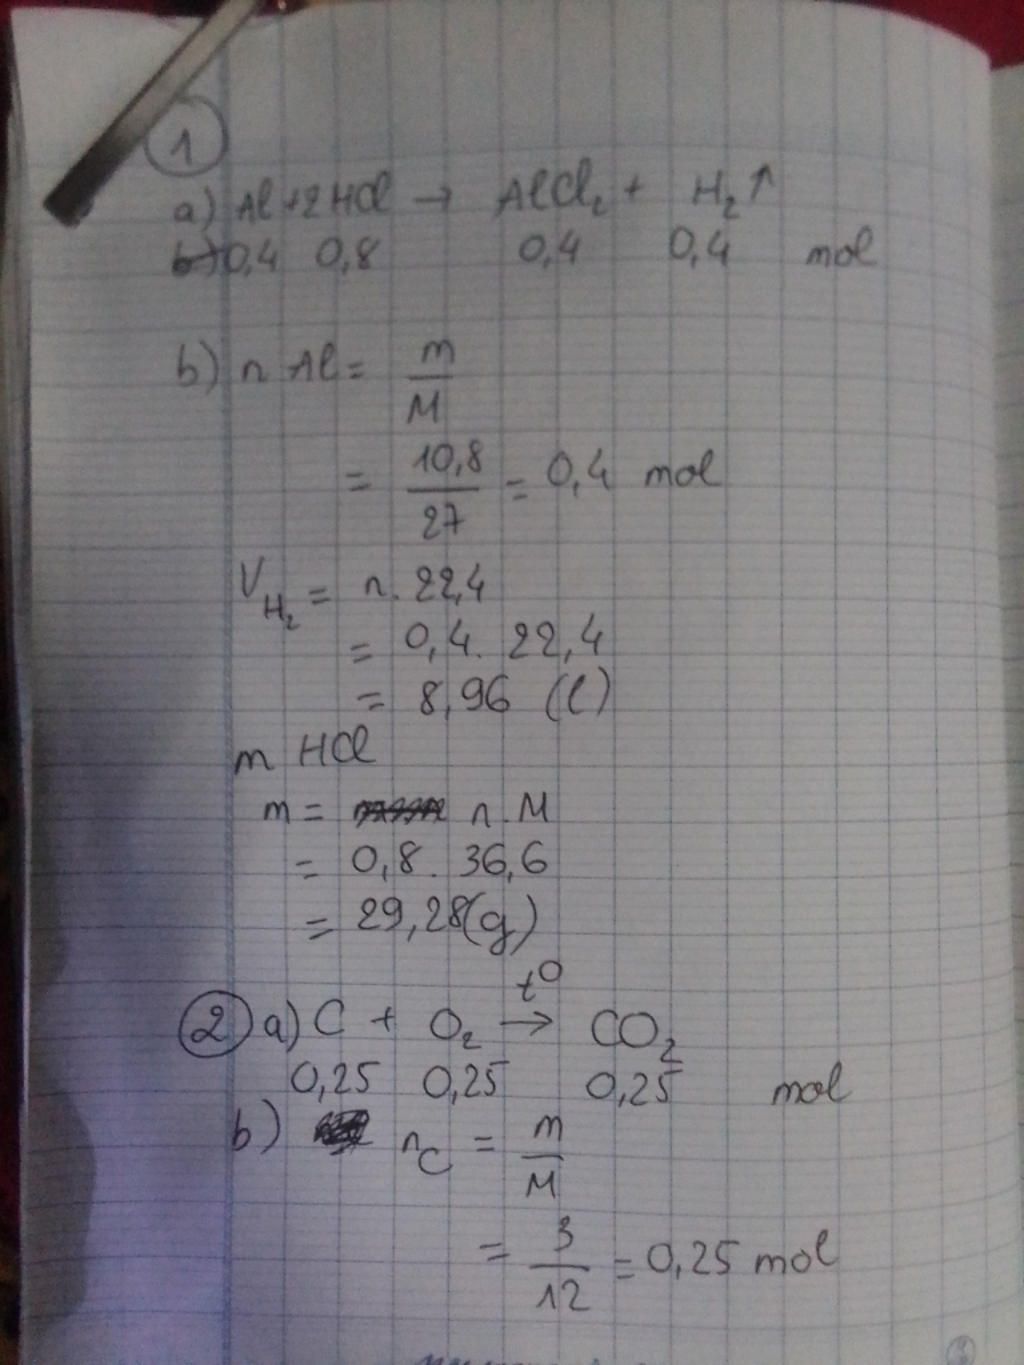 1
a) Al + 2HCl → AlCl₂ + H₂↑
0,4 0,8 0,4 0,4 mol
b) n Al = m/M
= 10,8/27 = 0,4 mol
V H₂ = n. 22,4
= 0,4. 22,4
= 8,96 (l)
m HCl
m = n. M
= 0,8. 36,6
= 29,28(g)
2 a) C + O₂ →t⁰ CO₂
0,25 0,25 0,25 mol
b) nC = m/M
= 3/12 = 0,25 mol